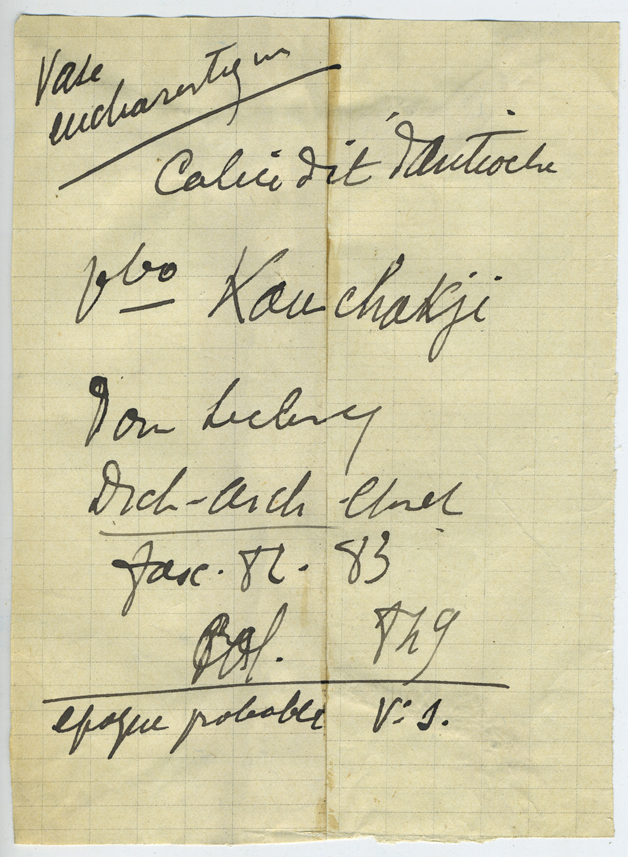 Vase
eucharestique
Calice dit d'Antioche
pbo Kouchakji
Dom Leclercq
Dich-arch chrel
fasc. 82. 83
849
epoque probable V: s.